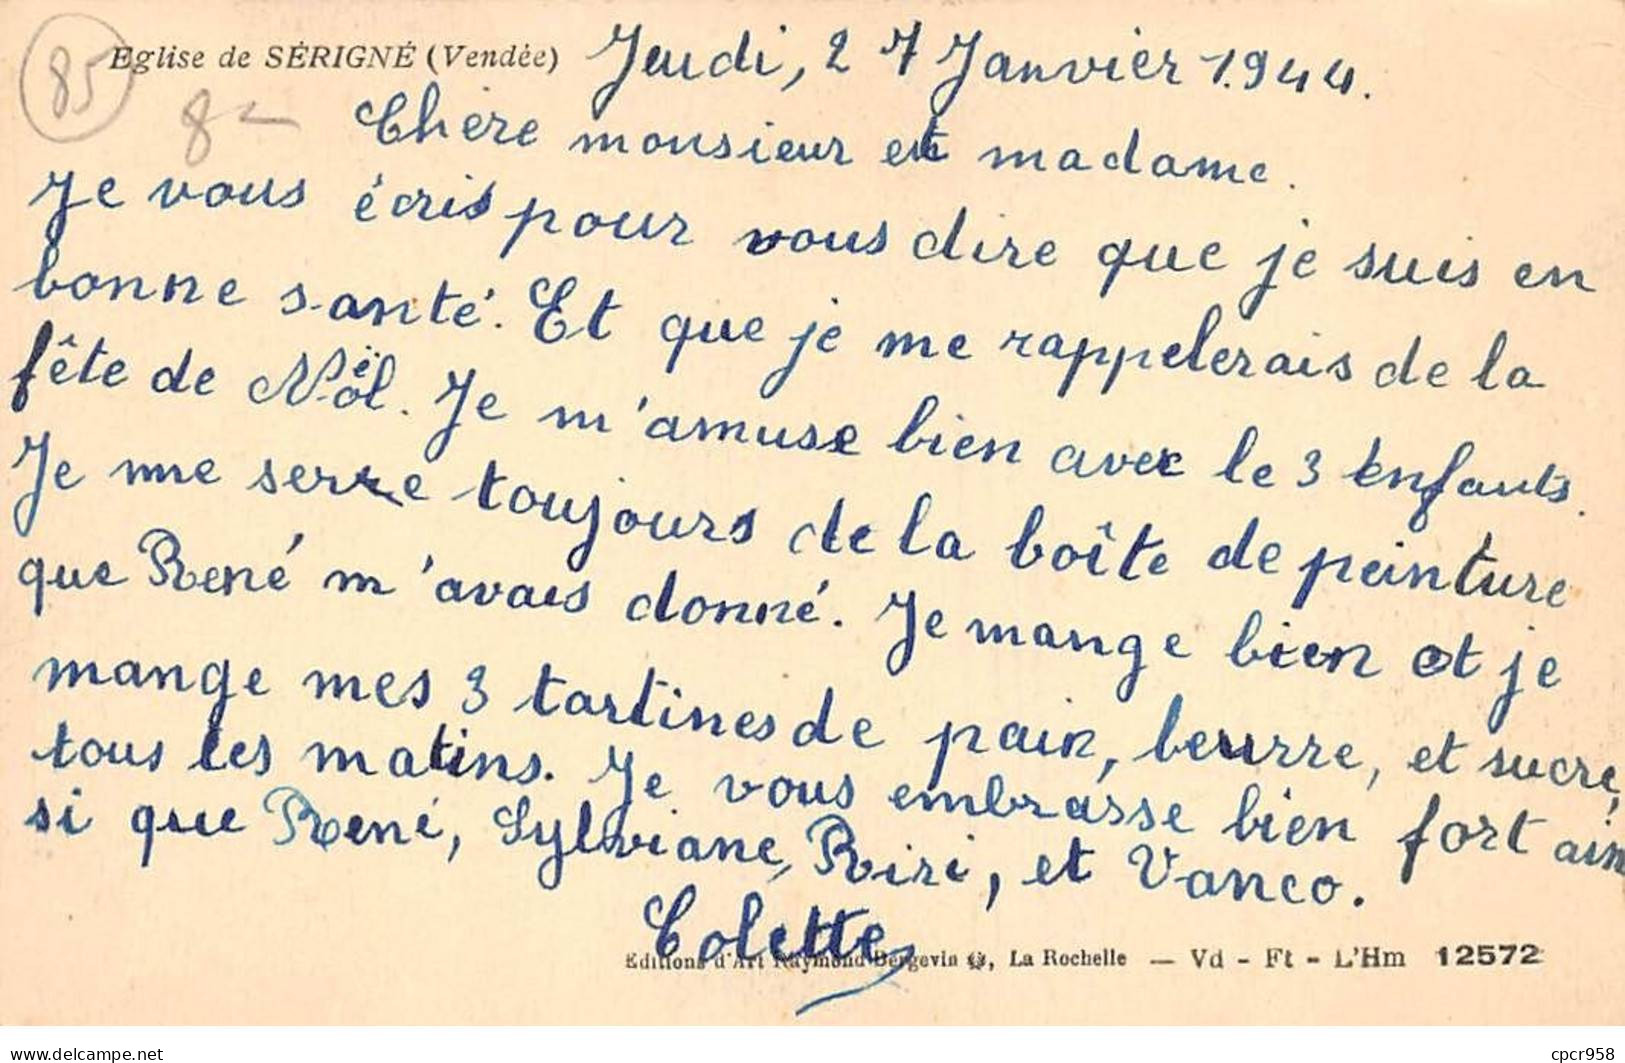 85
Eglise de SÉRIGNÉ (Vendée)
Jeudi, 27 Janvier 1944.
8-
Chère monsieur et madame.
Je vous écris pour vous dire que je suis en
bonne santé. Et que je me rappelerais de la
fête de Nöël. Je m'amuse bien avec le 3 enfants.
Je me serre toujours de la boîte de peinture
que René m'avais donné. Je mange bien et je
mange mes 3 tartines de pain, beurre, et sucre,
tous les matins. Je vous embrasse bien fort ain
si que René, Sylviane, Riri, et Vanco.
Colette
Editions d'Art Raymond Bergevin, La Rochelle — Vd - Ft - L'Hm 12572
www.delcampe.net
cpcr958